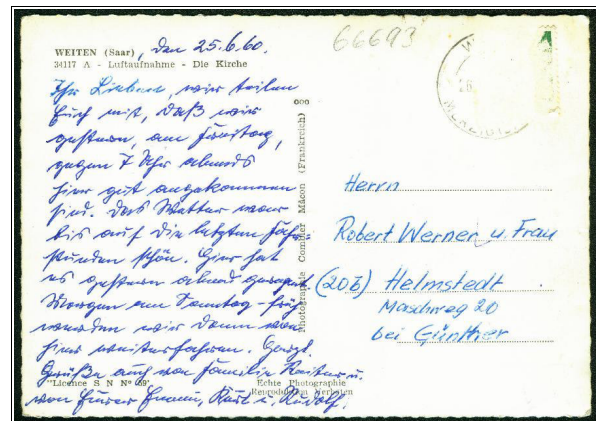 WEITEN (Saar), den 25.6.60.
34117 A - Luftaufnahme - Die Kirche
66693
Ihr Lieben, wir teilen
Euch mit, daß wir
gestern, am Freitag,
gegen 7 Uhr abends
hier gut angekommen
sind. Das Wetter war
bis auf die letzten Fahr-
stunden schön. Hier hat
es gestern abend geregnet.
Morgen am Sonntag-früh
werden wir dann von
hier weiterfahren. Herzl.
Grüße auch von Familie u.
von Eurer Emmi, Karl u. Rudolf.
"Licence S N N° 69"
Echte Photographie
Reproduktion Verboten
Photographie Combier Mâcon (Frankreich)
Herrn
Robert Werner u. Frau
(20b) Helmstedt
Maschweg 20
bei Günther